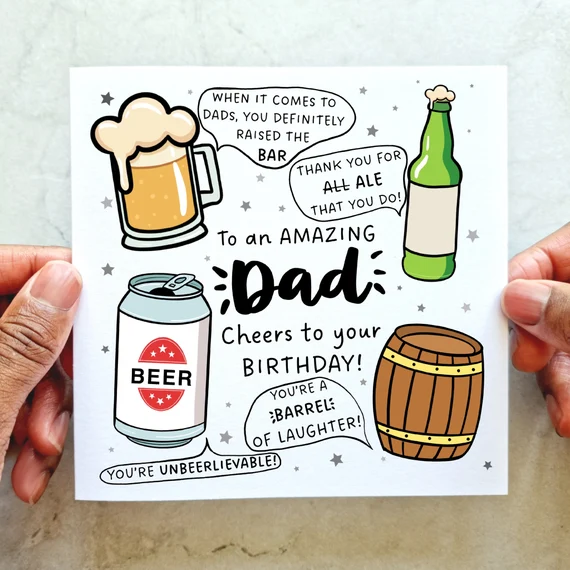 WHEN IT COMES TO
DADS, YOU DEFINITELY
RAISED THE
BAR
THANK YOU FOR
ALL ALE
THAT YOU DO!
To an AMAZING
Dad
Cheers to your
BIRTHDAY!
BEER
YOU'RE A
BARREL
OF LAUGHTER!
YOU'RE UNBEERLIEVABLE!